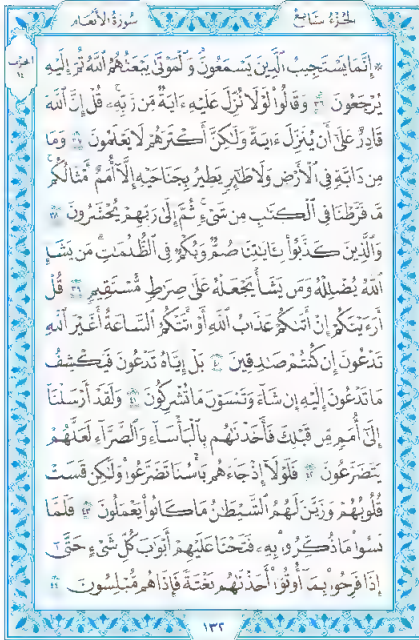 الجزء السابع
سورة الأنعام
الحزب ١٤
۞ إِنَّمَا يَسْتَجِيبُ ٱلَّذِينَ يَسْمَعُونَۘ وَٱلْمَوْتَىٰ يَبْعَثُهُمُ ٱللَّهُ ثُمَّ إِلَيْهِ
يُرْجَعُونَ ٣٦ وَقَالُوا۟ لَوْلَا نُزِّلَ عَلَيْهِ ءَايَةٌ مِّن رَّبِّهِۦۚ قُلْ إِنَّ ٱللَّهَ
قَادِرٌ عَلَىٰٓ أَن يُنَزِّلَ ءَايَةً وَلَٰكِنَّ أَكْثَرَهُمْ لَا يَعْلَمُونَ ٣٧ وَمَا
مِن دَآبَّةٍ فِى ٱلْأَرْضِ وَلَا طَٰٓئِرٍ يَطِيرُ بِجَنَاحَيْهِ إِلَّآ أُمَمٌ أَمْثَالُكُمۚ
مَّا فَرَّطْنَا فِى ٱلْكِتَٰبِ مِن شَىْءٍۚ ثُمَّ إِلَىٰ رَبِّهِمْ يُحْشَرُونَ ٣٨
وَٱلَّذِينَ كَذَّبُوا۟ بِـَٔايَٰتِنَا صُمٌّ وَبُكْمٌ فِى ٱلظُّلُمَٰتِۗ مَن يَشَإِ
ٱللَّهُ يُضْلِلْهُ وَمَن يَشَأْ يَجْعَلْهُ عَلَىٰ صِرَٰطٍ مُّسْتَقِيمٍ ٣٩ قُلْ
أَرَءَيْتَكُمْ إِنْ أَتَىٰكُمْ عَذَابُ ٱللَّهِ أَوْ أَتَتْكُمُ ٱلسَّاعَةُ أَغَيْرَ ٱللَّهِ
تَدْعُونَ إِن كُنتُمْ صَٰدِقِينَ ٤٠ بَلْ إِيَّاهُ تَدْعُونَ فَيَكْشِفُ
مَا تَدْعُونَ إِلَيْهِ إِن شَآءَ وَتَنسَوْنَ مَا تُشْرِكُونَ ٤١ وَلَقَدْ أَرْسَلْنَآ
إِلَىٰٓ أُمَمٍ مِّن قَبْلِكَ فَأَخَذْنَٰهُم بِٱلْبَأْسَآءِ وَٱلضَّرَّآءِ لَعَلَّهُمْ
يَتَضَرَّعُونَ ٤٢ فَلَوْلَآ إِذْ جَآءَهُم بَأْسُنَا تَضَرَّعُوا۟ وَلَٰكِن قَسَتْ
قُلُوبُهُمْ وَزَيَّنَ لَهُمُ ٱلشَّيْطَٰنُ مَا كَانُوا۟ يَعْمَلُونَ ٤٣ فَلَمَّا
نَسُوا۟ مَا ذُكِّرُوا۟ بِهِۦ فَتَحْنَا عَلَيْهِمْ أَبْوَٰبَ كُلِّ شَىْءٍ حَتَّىٰٓ
إِذَا فَرِحُوا۟ بِمَآ أُوتُوٓا۟ أَخَذْنَٰهُم بَغْتَةً فَإِذَا هُم مُّبْلِسُونَ ٤٤
١٣٢